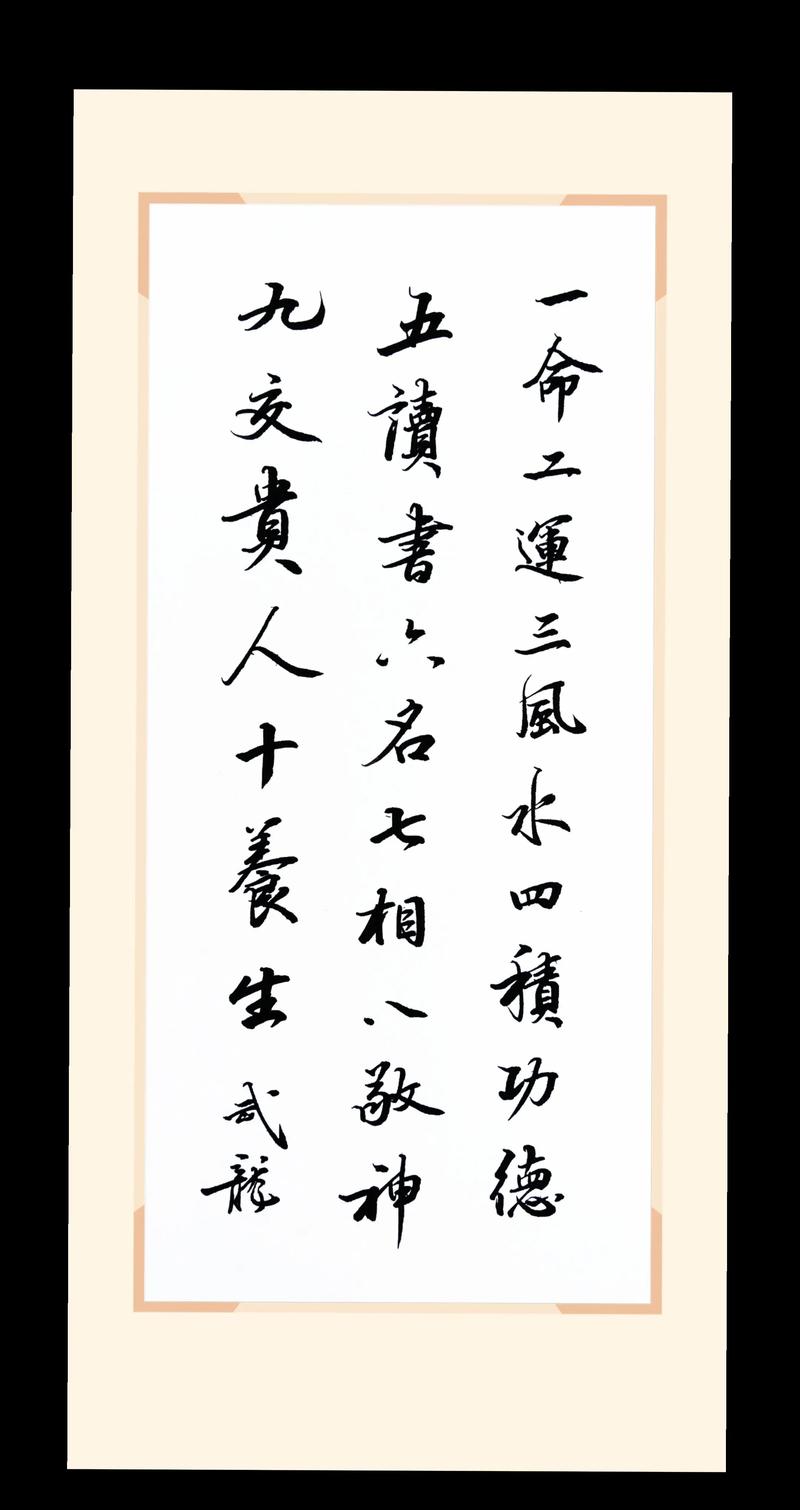 一命二運三風水四積功德
五讀書六名七相八敬神
九交貴人十養生 武龍